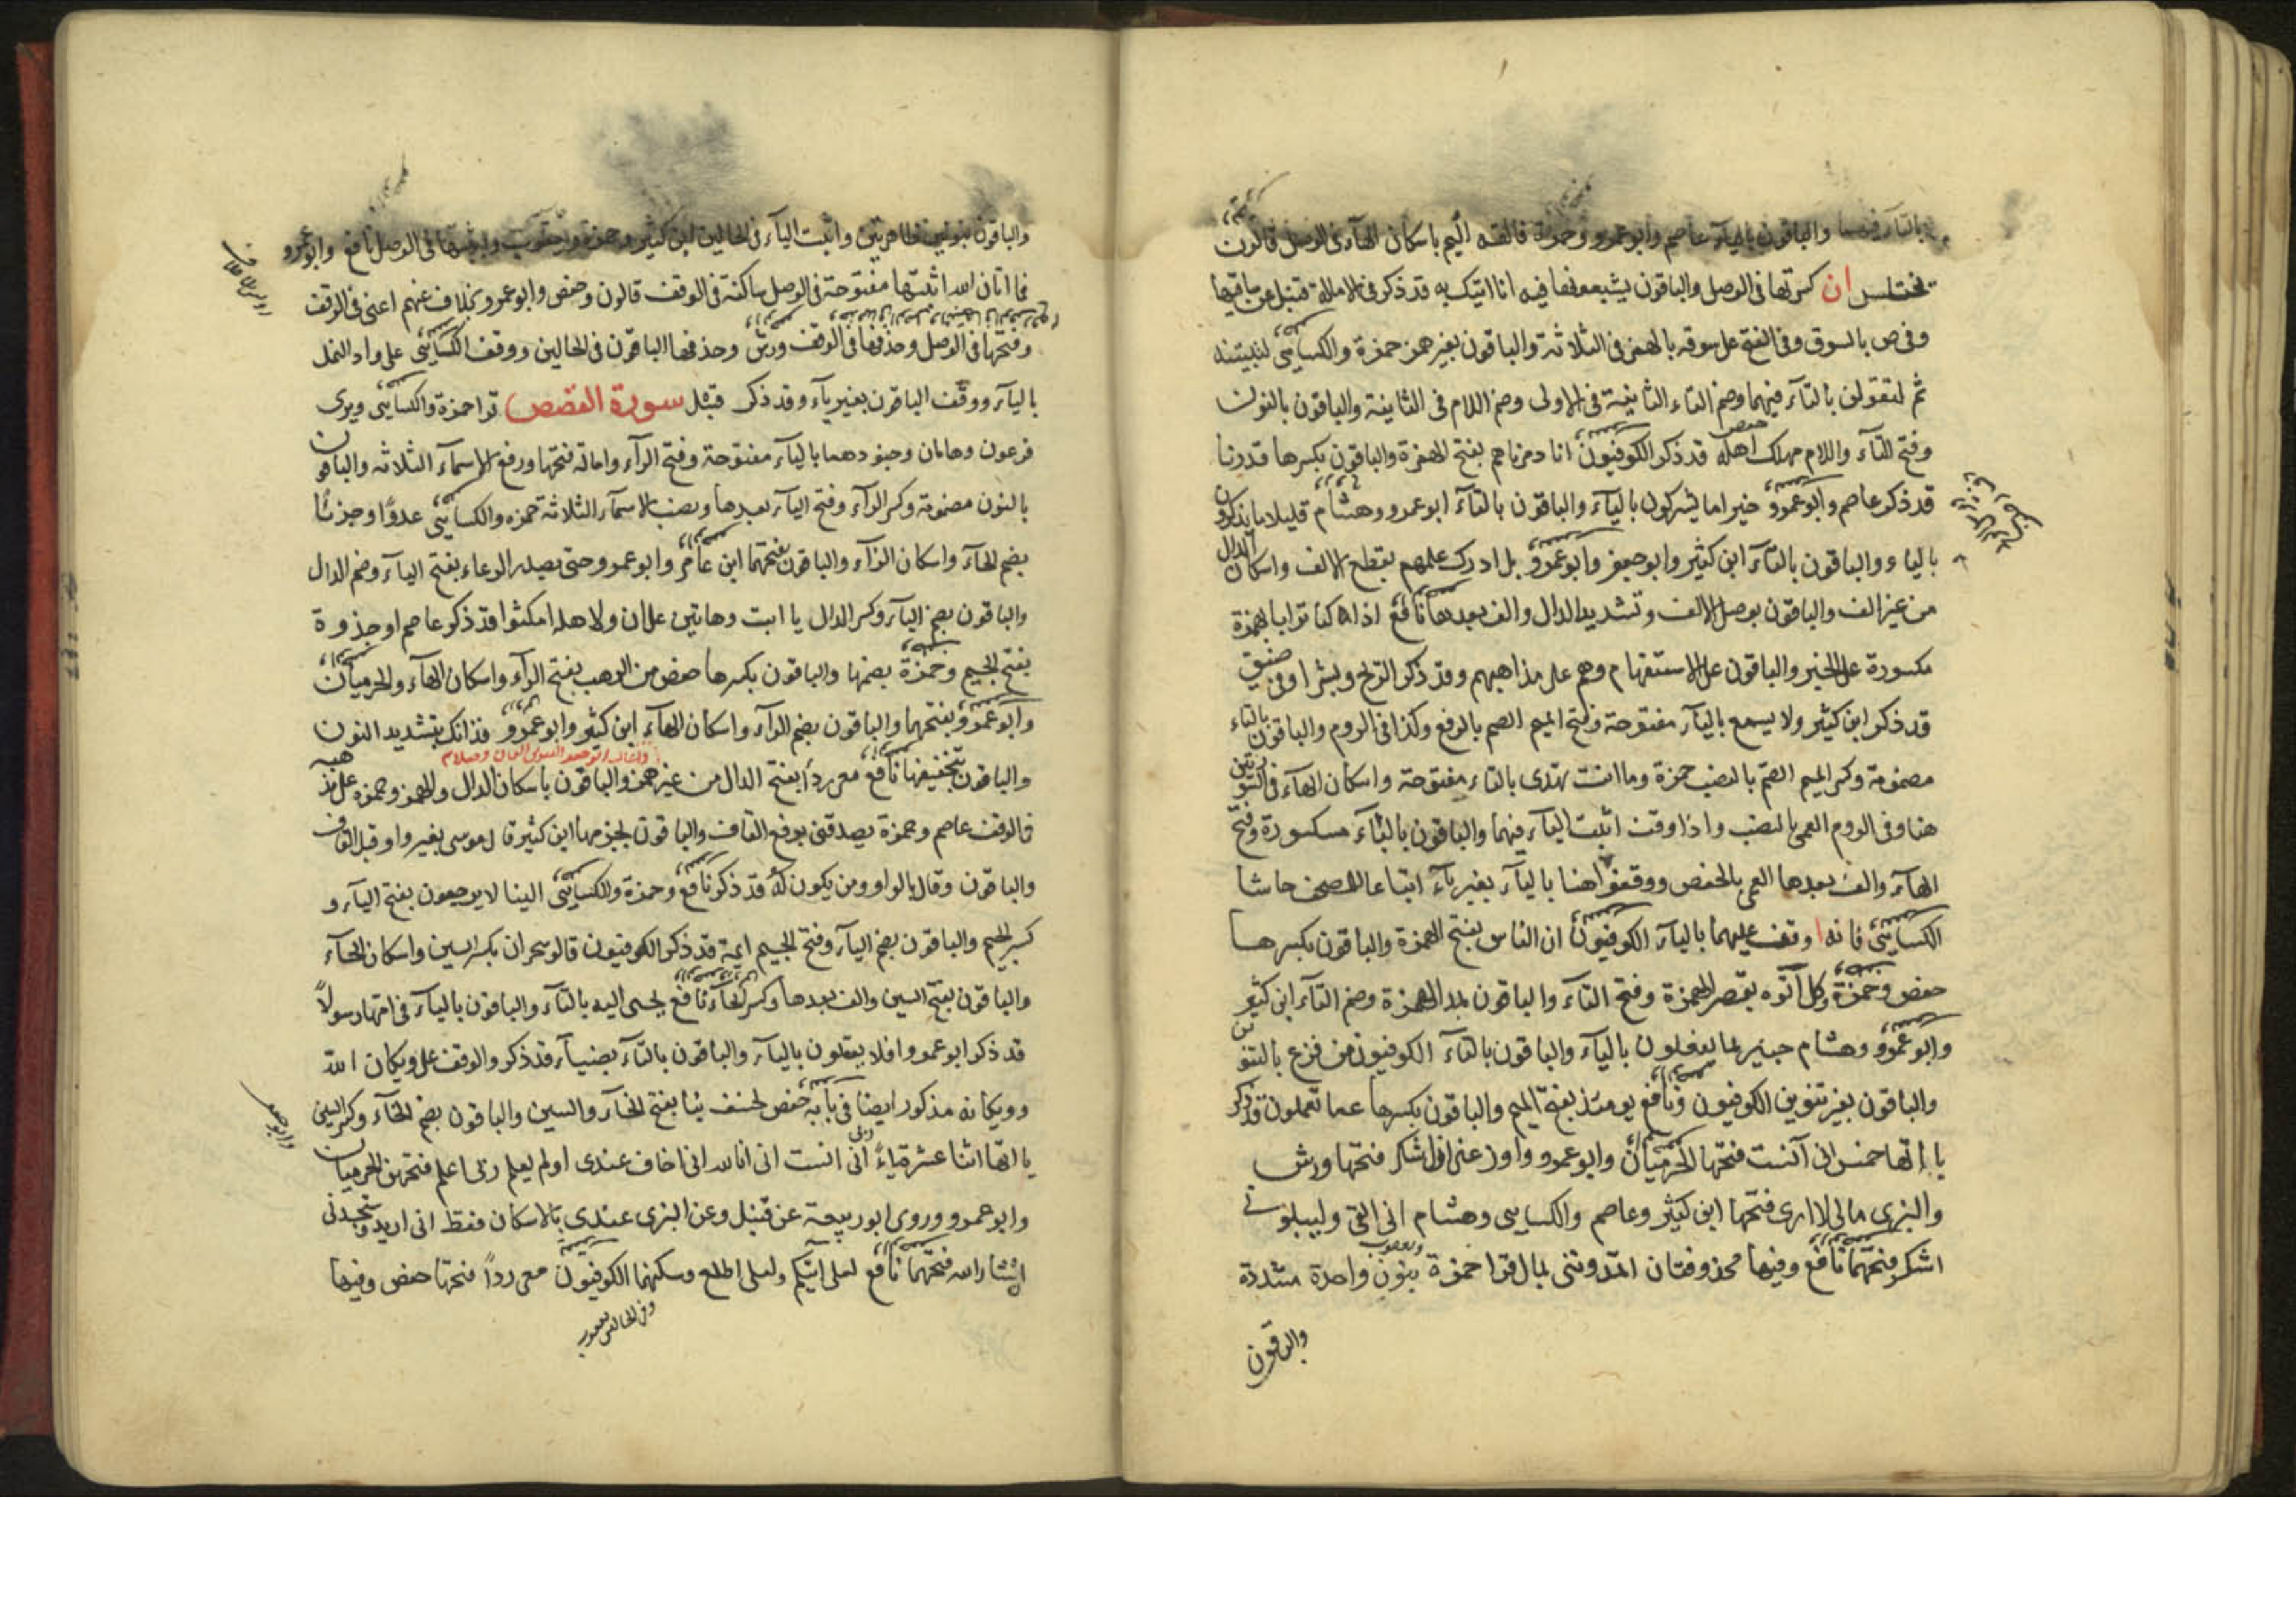 بالتآء فيهما والباقون باليآء عاصم وابو عمرو وحمزة فالقه اليهم باسكان الهآء فى الوصل قالون
يختلس ان كسرتها فى الوصل والباقون يشبعونها فيه انا اتيك به قد ذكر فى الامالة قنبل عن ساقيها
وفى ص بالسوق وفى الفتح على سوقه بالهمز فى الثلاثة والباقون بغير همز حمزة والكسائى لتبيتنه
ثم لتقولن بالتآء فيهما وضم التاء الثانية فى الاولى وضم اللام فى الثانية والباقون بالنون
وفتح التآء واللام مهلك اهله قد ذكر الكوفيون انا دمرناهم بفتح الهمزة والباقون بكسرها قدرنا
قد ذكر عاصم وابو عمرو خير اما يشركون باليآء والباقون بالتآء ابو عمرو وهشام قليلا ما يذكرون
بالياء والباقون بالتآء ابن كثير وابو جعفر وابو عمرو بل ادرك علمهم بقطع الالف واسكان الدال
من غير الف والباقون بوصل الالف وتشديد الدال والف بعدها نافع اذا كنا ترابا بهمزة
مكسورة على الخبر والباقون على الاستفهام وهم على مذاهبهم وقد ذكر الريح وبشرا وفى ضيق
قد ذكر ابن كثير ولا يسمع باليآء مفتوحة وفتح الميم الصم بالرفع وكذا فى الروم والباقون بالتاء
مضمومة وكسر الميم الصم بالنصب حمزة وما انت تهدى بالتاء مفتوحة واسكان الهآء فى السورتين
هنا وفى الروم العمى بالنصب واذا وقف اثبت اليآء فيهما والباقون بالبآء مكسورة وفتح
الهآء والف بعدها العمى بالخفض ووقفوا هنا باليآء بغير يآء اتباعا للمصحف حاشا
الكسائى فانه وقف عليهما باليآء الكوفيون ان الناس بفتح الهمزة والباقون بكسرها
حفص وحمزة وكل آتوه بقصر الهمزة وفتح التآء والباقون بمد الهمزة وضم التآء ابن كثير
وابو عمرو وهشام خبير بما يفعلون باليآء والباقون بالتآء الكوفيون من فزع بالتنوين
والباقون بغير تنوين الكوفيون ونافع يومئذ بفتح الميم والباقون بكسرها عما تعملون قد ذكر
ياءاتها خمس انى آنست فتحها الحرميان وابو عمرو واوزعنى ان اشكر فتحها ورش
والبزى مالى لا ارى فتحها ابن كثير وعاصم والكسايى وهشام انى القى وليبلونى
اشكر فتحهما نافع وفيها محذوفتان اتمدوننى بمال قرا حمزة بنون واحدة مشددة
والباقون
والباقون بنونين ظاهرتين واثبت اليآء فى الحالين ابن كثير وحمزة ويعقوب واثبتها فى الوصل نافع وابو عمرو
فما اتان الله اثبتها مفتوحة فى الوصل ساكنة فى الوقف قالون وحفص وابو عمرو بخلاف عنهم اعنى فى الوقف
وفتحها فى الوصل وحذفها فى الوقف ورش وحذفها الباقون فى الحالين ووقف الكسائى على واد النمل
باليآء ووقف الباقون بغير يآء وقد ذكر قبل سورة القصص قرا حمزة والكسائى ويرى
فرعون وهامان وجنودهما باليآء مفتوحة وفتح الرآء وامالة فتحها ورفع الاسمآء الثلاثه والباقون
بالنون مضمومة وكسر الرآء وفتح اليآء بعدها ونصب الاسمآء الثلاثة حمزه والكسائى عدوًا وحزنًا
بضم الحآء واسكان الزآء والباقون بفتحهما ابن عامر وابو عمرو حتى يصدر الرعاء بفتح اليآء وضم الدال
والباقون بضم اليآء وكسر الدال يا ابت وهاتين على ان ولاهله امكثوا قد ذكر عاصم او جذوة
بفتح الجيم وحمزة بضمها والباقون بكسرها حفص من الرهب بفتح الرآء واسكان الهآء والحرميان
وابو عمرو بفتحهما والباقون بضم الرآء واسكان الهآء ابن كثير وابو عمرو فذانك بتشديد النون
والباقون بتخفيفها نافع معى ردا بفتح الدال من غير همز والباقون باسكان الدال والهمز وحمزه على مذهبه
فى الوقف عاصم وحمزة يصدقنى برفع القاف والباقون بجزمها ابن كثير قال موسى بغير واو قبل القاف
والباقون وقال بالواو ومن يكون له قد ذكر نافع وحمزة والكسائى الينا لا يرجعون بفتح اليآء و
كسر الجيم والباقون بضم اليآء وفتح الجيم ايمة قد ذكر الكوفيون قالو سحران بكسر السين واسكان الحآء
والباقون بفتح السين والف بعدها وكسر الحآء نافع تجبى اليه بالتآء والباقون باليآء فى امها رسولاً
قد ذكر ابو عمرو افلا يعقلون باليآء والباقون بالتآء بضيآء قد ذكر والوقف على ويكان الله
وويكانه مذكور ايضا فى بابه حفص لخسف بنا بفتح الخآء والسين والباقون بضم الخآء وكسر السين
ياءاتها اثنا عشرة ياءً ربى انى انست انى انا الله انى اخاف عندى اولم يعلم ربى اعلم فتحهن الحرميان
وابو عمرو وروى ابو ربيعة عن قنبل وعن البزى عندى بالاسكان فقط انى اريد وستجدنى
ان شاء الله فتحهما نافع لعلى آتيكم ولعلى اطلع وسكنهما الكوفيون معى رداً فتحها حفص وفيها
وفى الحالين يعقوب